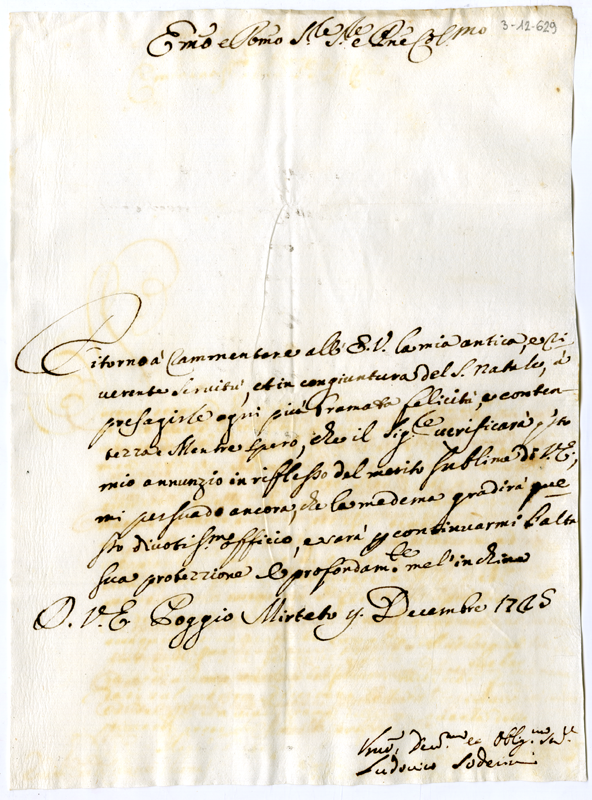 3-12-629
Emo e Rmo Sre Sre e Pne Col.mo
Ritorno à rammentare all' E. V. la mia antica, e ri
verente servitù, et in congiuntura del S. Natale, à
presagirle ogni più bramata felicità, e conten
tezza e Mentre spero, che il Sig.re verificarà q.sto
mio annunzio in riflesso del merito sublime di V. E,
mi persuado ancora, che la medema gradirà que
sto divotis.mo offficio, e sarà p continuarmi l'alta
sua protezzione e profondam.te me l'inchino
D. V. E Poggio Mirteto Decembre
Dev.mo et Oblig.mo
Ludovico Soderini